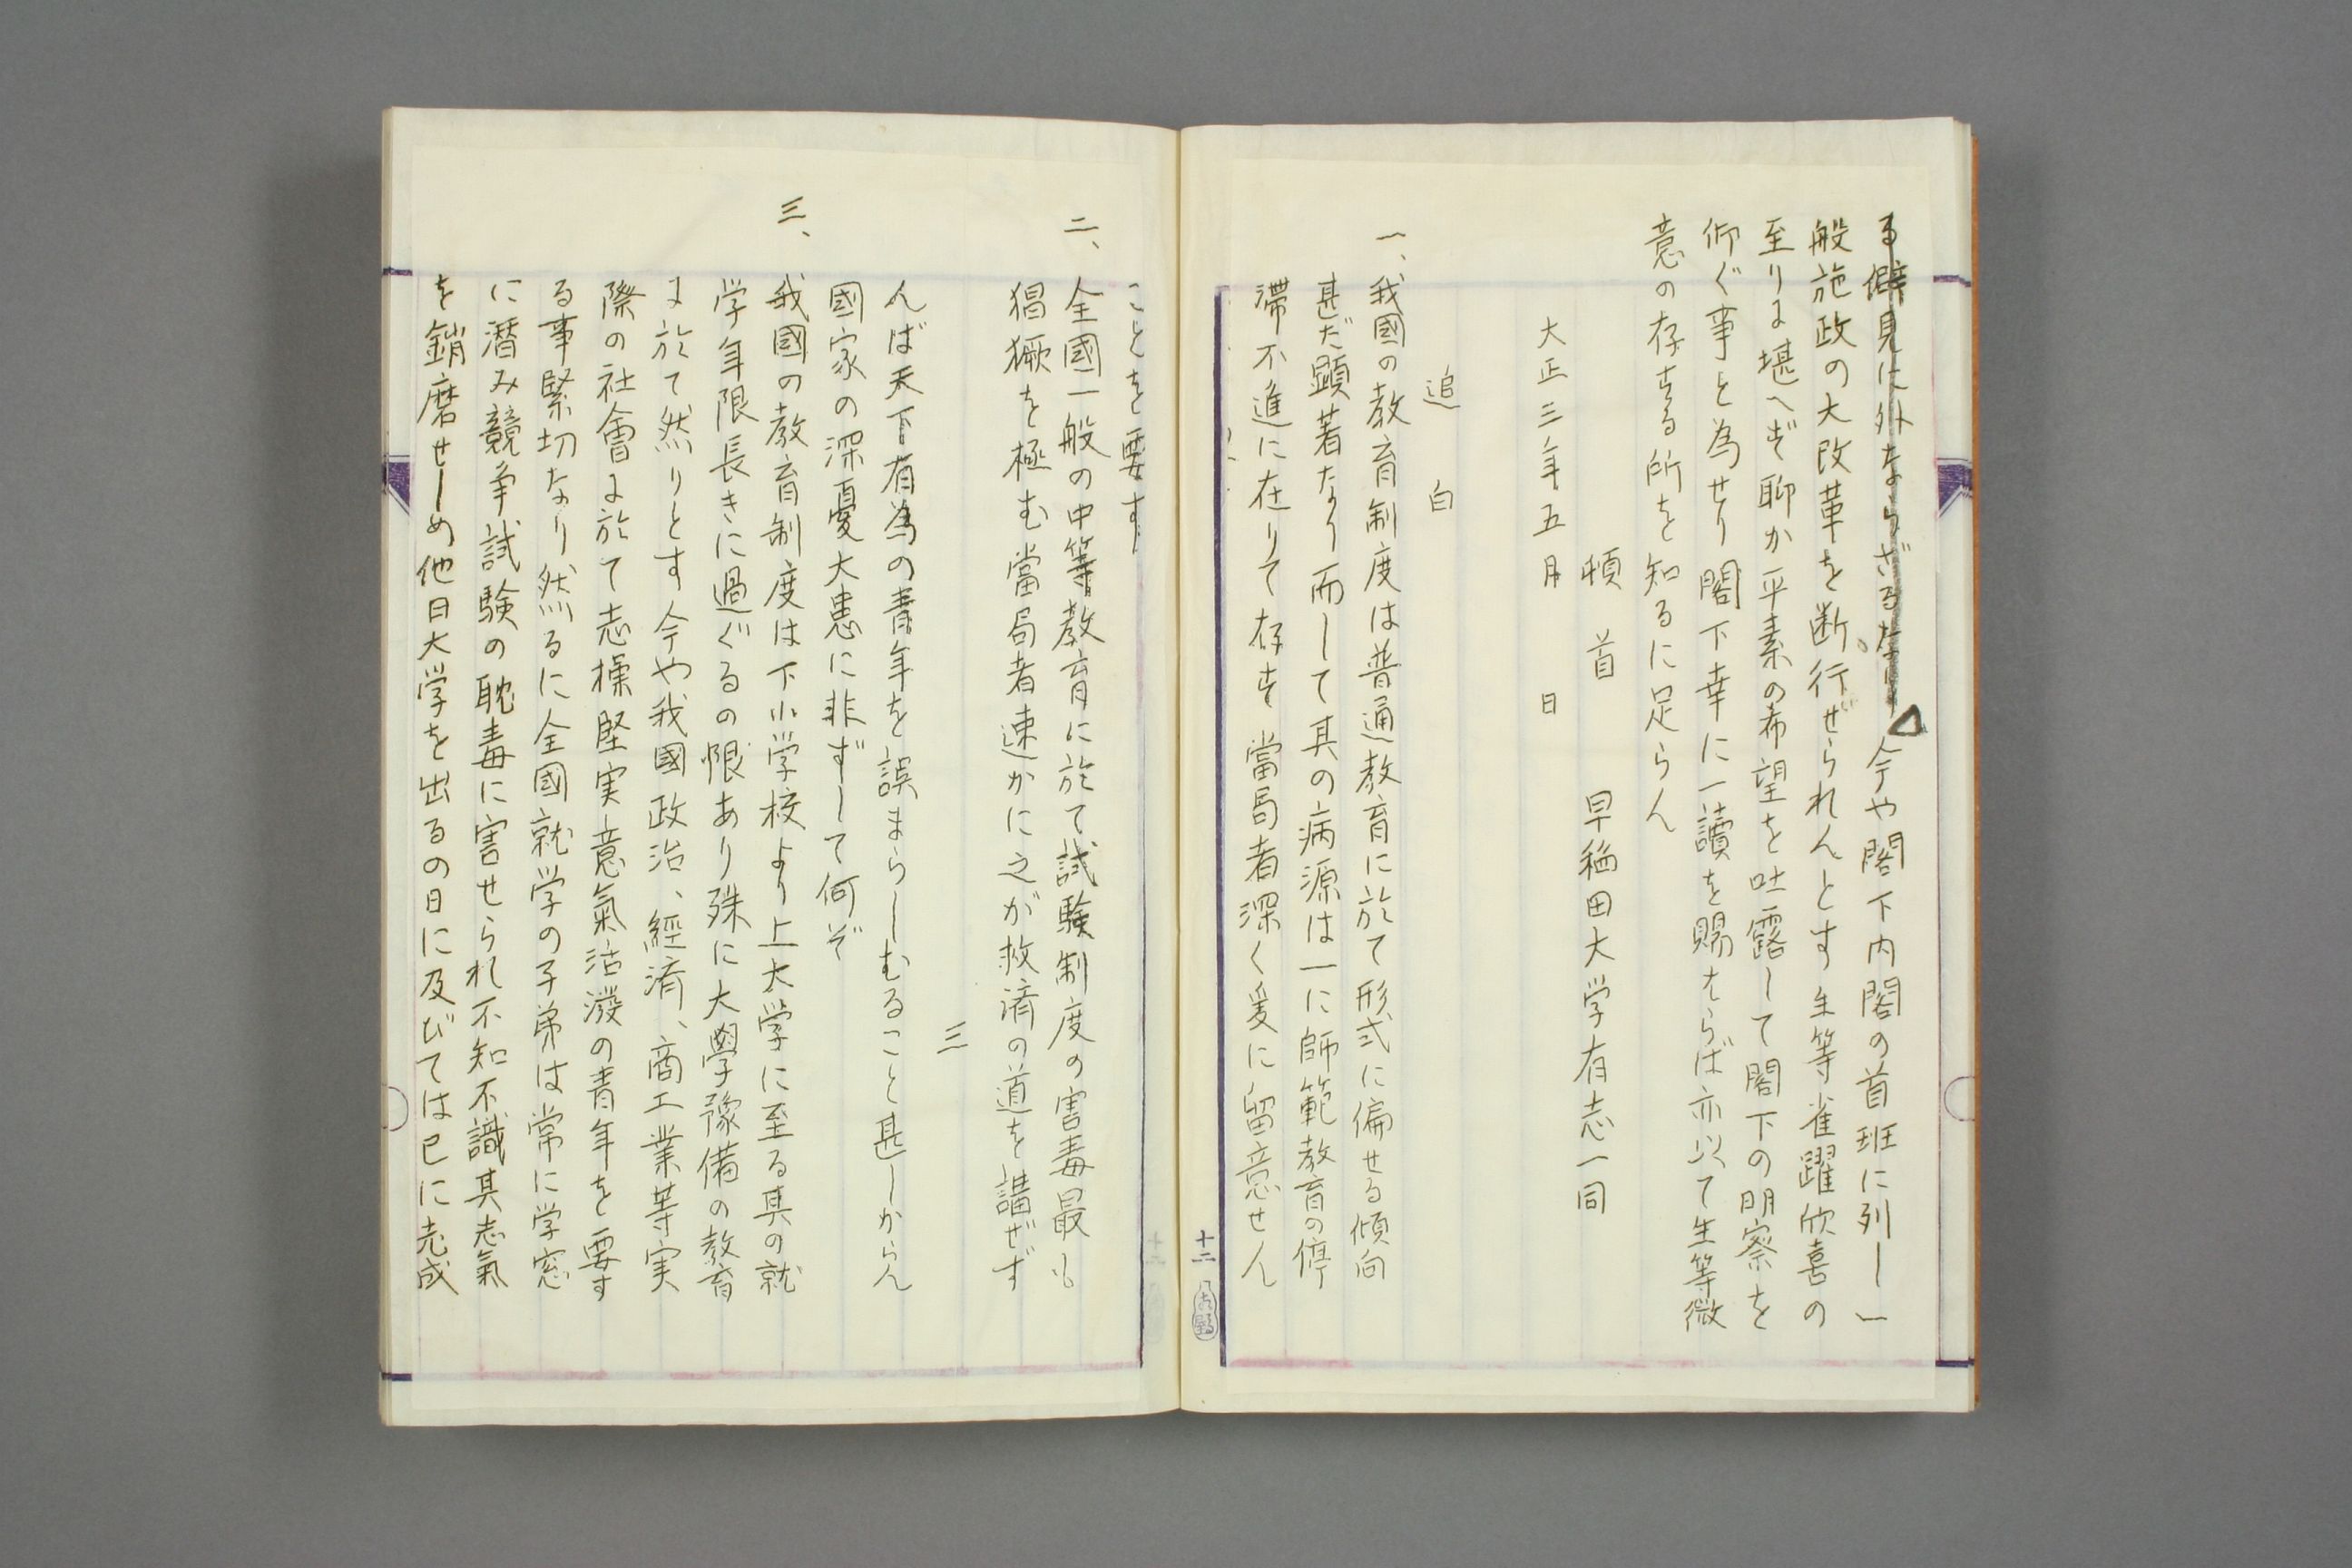 る僻見に外ならざるなり 今や閣下内閣の首班に列し一
般施政の大改革を断行せられんとす生等雀躍欣喜の
至りに堪へず聊か平素の希望を吐露して閣下の明察を
仰ぐ事と為せり閣下幸に一讀を賜はらば亦以て生等微
意の存する所を知るに足らん
頓首 早稲田大学有志一同
大正三年五月 日
追白
一、我國の教育制度は普通教育に於て形式に偏せる傾向
甚だ顕著なり而して其の病源は一に師範教育の停
滞不進に在りて存す當局者深く爰に留意せん
十二
ことを要す
二、全國一般の中等教育に於て試験制度の害毒最も
猖獗を極む當局者速かに之が救済の道を講ぜず
三
んば天下有為の青年を誤まらしむること甚しからん
國家の深憂大患に非ずして何ぞ
三、我國の教育制度は下小学校より上大学に至る其の就
学年限長きに過ぐるの恨あり殊に大學豫備の教育
に於て然りとす今や我國政治、經済、商工業等実
際の社會に於て志操堅実意氣活溌の青年を要す
る事緊切なり然るに全國就学の子弟は常に学窓
に潜み競争試験の耽毒に害せられ不知不識其志氣
を銷磨せしめ他日大学を出るの日に及びては已に老成